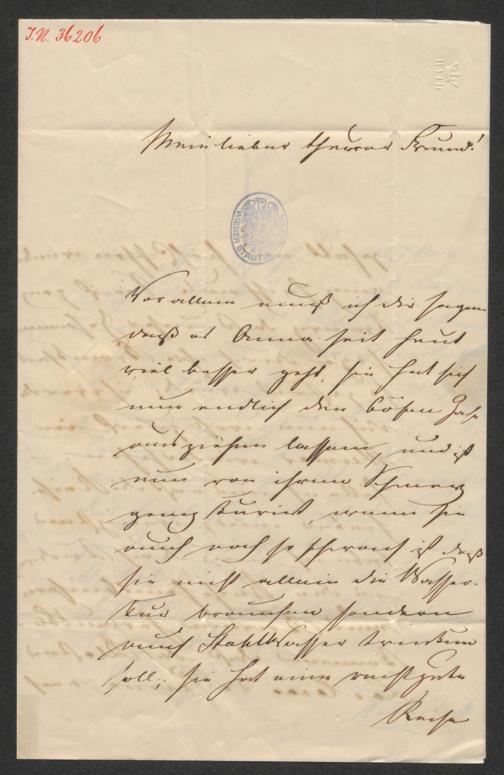 J.N. 36206
Mein lieber theurer Freund!
Vor allem muß ich dir sagen
daß es Anna seit heut
viel besser geht, sie hat sich
nun endlich den bösen Zahn
ausziehen lassen, und ist
nun von ihrem Schmerz
ganz kurirt, wenn sie
auch noch so schwach ist daß
sie nicht allein die Wasser-
kur brauchen sondern
auch Stahlwasser trinken
soll; sie hat eine recht gute
Reise